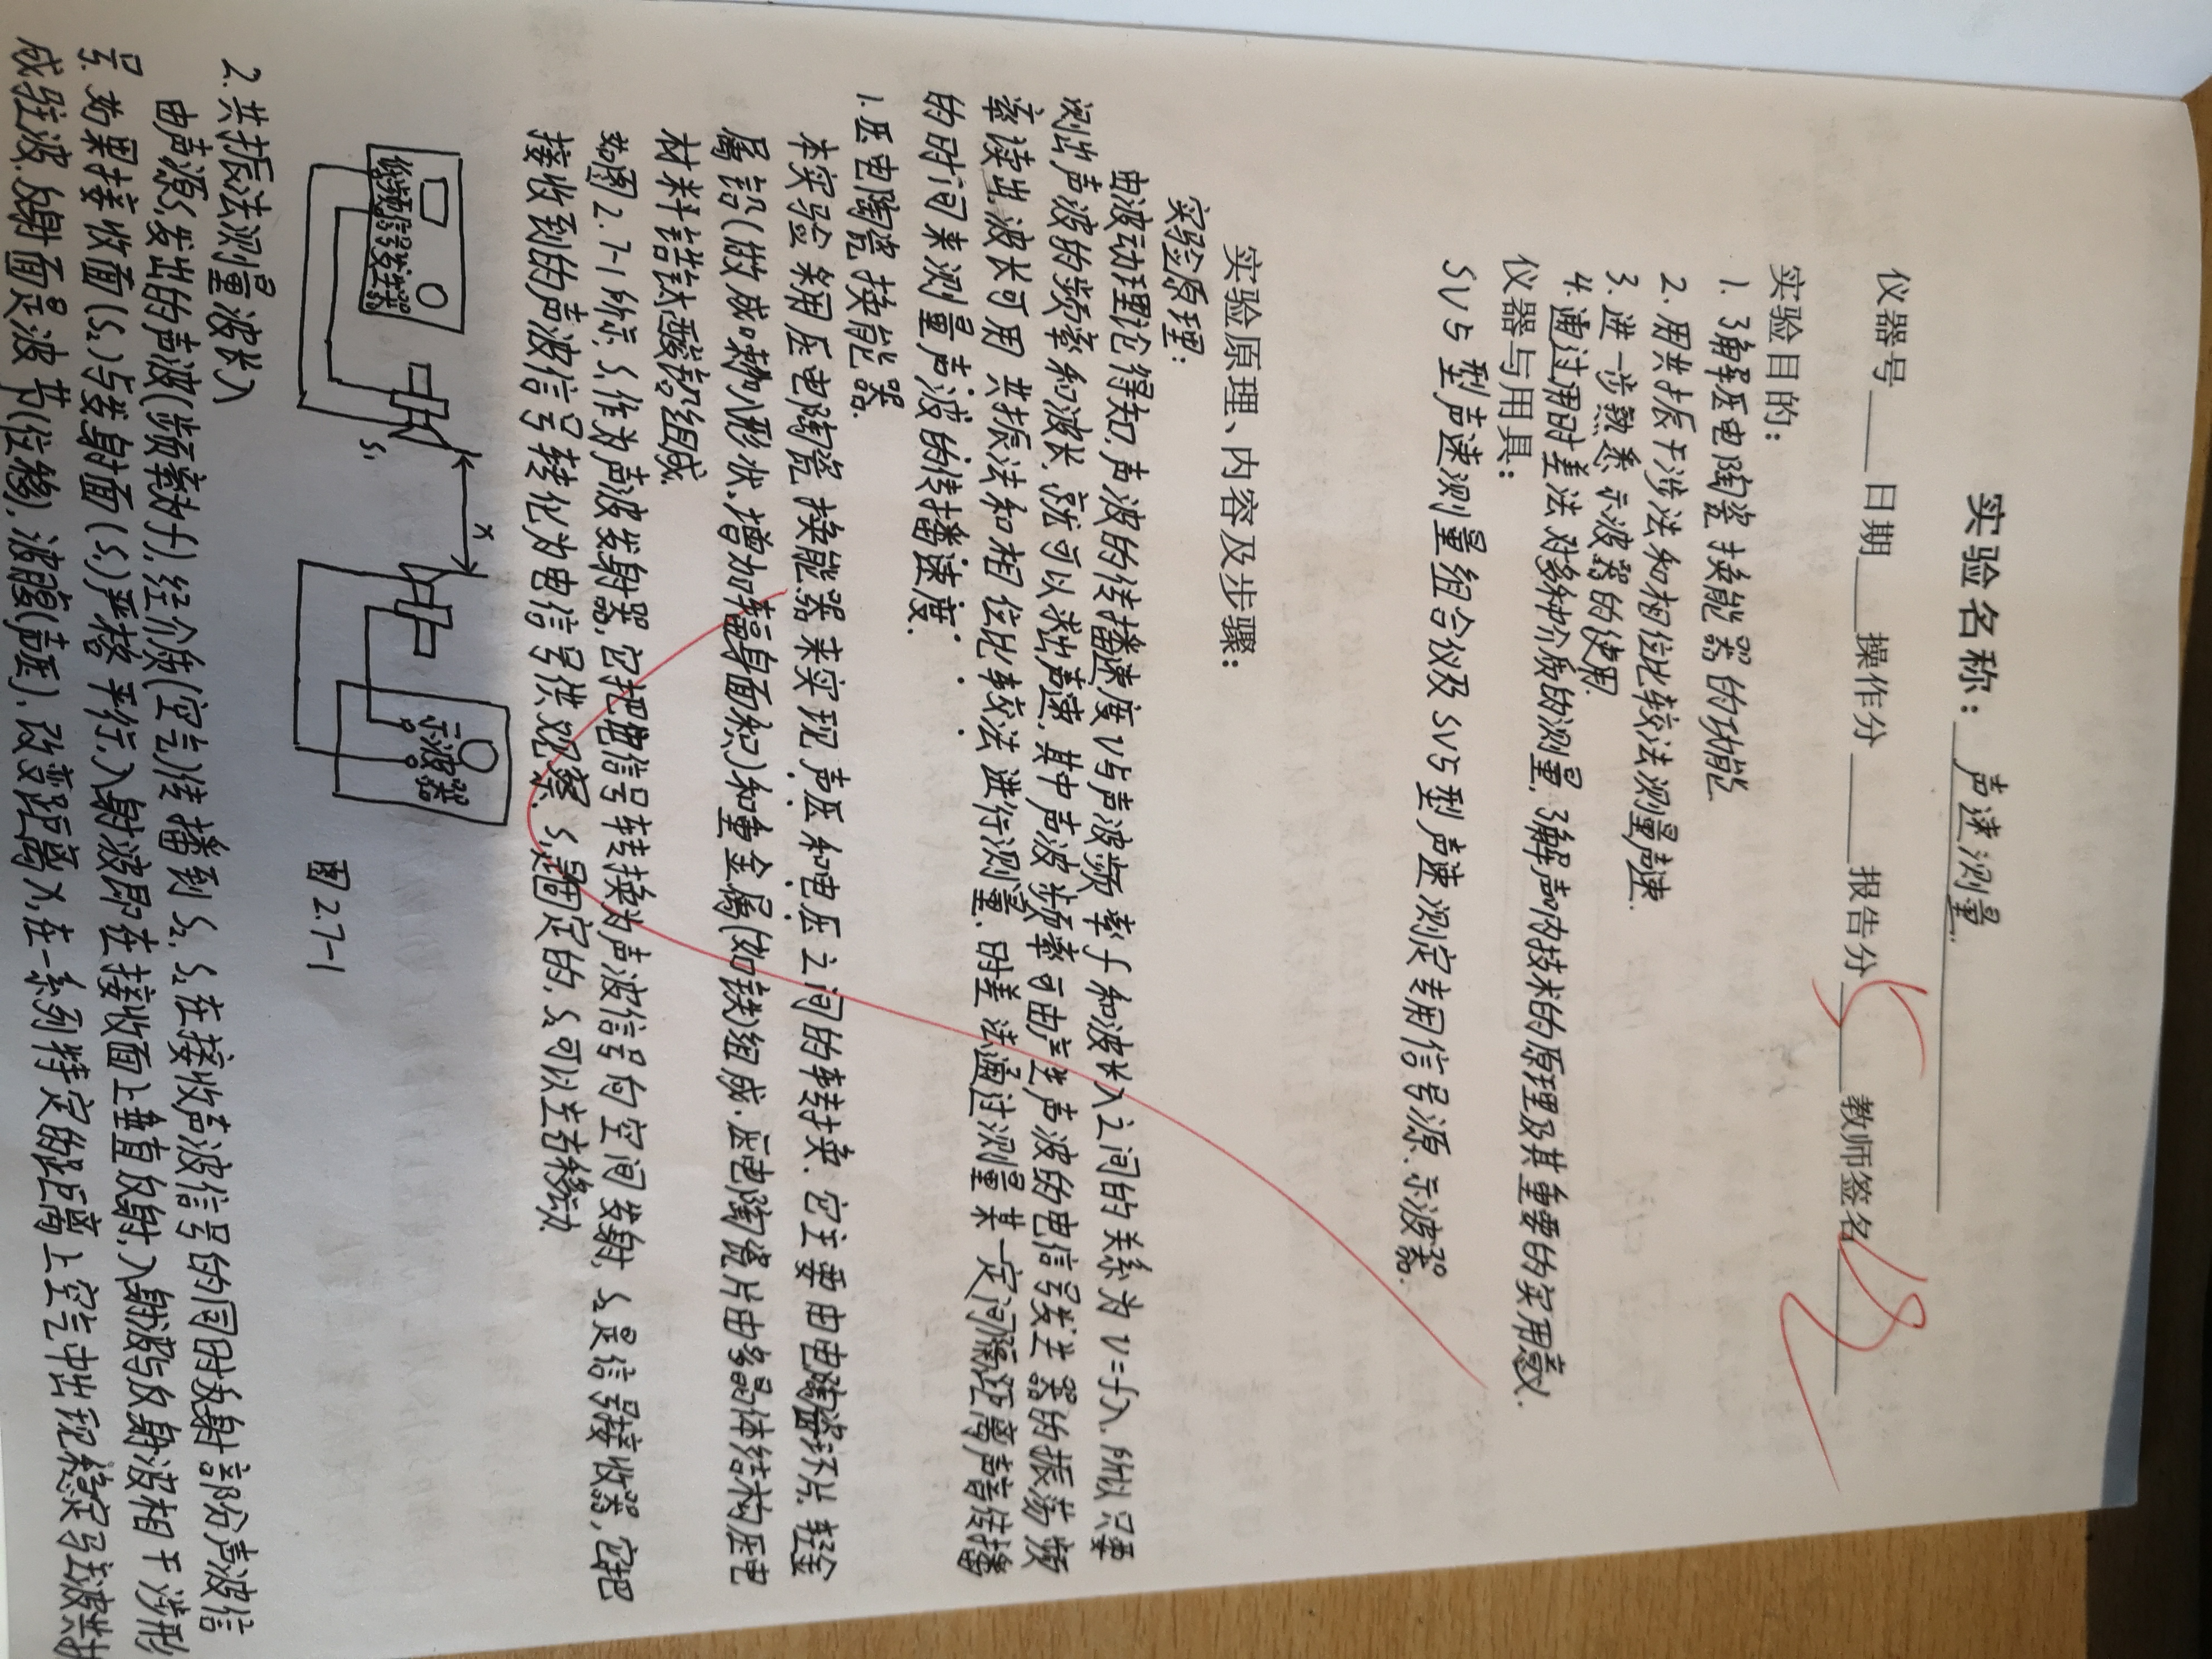 实验名称：声速测量.
仪器号____日期____操作分____报告分____教师签名____
实验目的：
1. 了解压电陶瓷换能器的功能
2. 用共振干涉法和相位比较法测量声速.
3. 进一步熟悉示波器的使用.
4. 通过用时差法对多种介质的测量, 了解声呐技术的原理及其重要的实用意义.
仪器与用具：
SV5型声速测量组合仪及SV5型声速测定专用信号源、示波器.
实验原理、内容及步骤：
实验原理：
由波动理论得知, 声波的传播速度v与声波频率f和波长λ之间的关系为v=fλ. 所以只要
测出声波的频率和波长, 就可以求出声速. 其中声波频率可由产生声波的电信号发生器的振荡频
率读出, 波长可用共振法和相位比较法进行测量. 时差法通过测量某一定间隔距离声音传播
的时间来测量声波的传播速度.
1. 压电陶瓷换能器.
本实验采用压电陶瓷换能器来实现声压和电压之间的转换. 它主要由电陶瓷环片、轻金
属铝(做成喇叭形状, 增加辐射面积)和重金属(如铁)组成. 压电陶瓷片由多晶体结构的压电
材料锆钛酸铅组成.
如图2.7-1所示, S₁作为声波发射器, 它把电信号转换为声波信号向空间发射. S₂是信号接收器, 它把
接收到的声波信号转化为电信号供观察. S₁是固定的, S₂可以左右移动.
低频信号发生器
S₁
x
示波器
图2.7-1
2. 共振法测量波长λ
由声源S₁发出的声波(频率为f), 经介质(空气)传播到S₂, S₂在接收声波信号的同时反射部分声波信
号. 如果接收面(S₂)与发射面(S₁)严格平行, 入射波即在接收面上垂直反射, 入射波与反射波相干涉形
成驻波. 反射面是波节(位移), 波腹(声压). 改变距离x, 在一系列特定的距离上空气中出现稳定驻波共